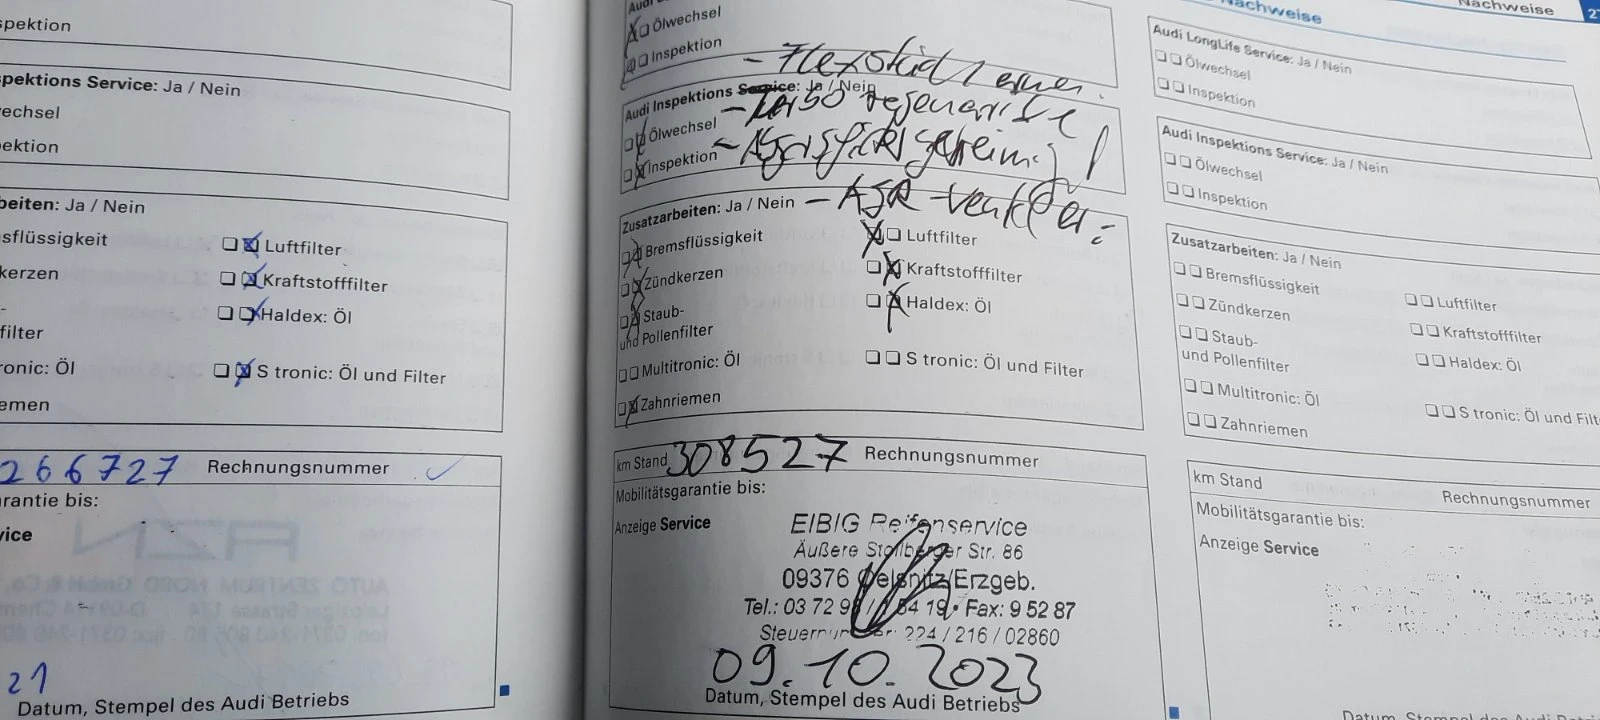 spektion
spektions Service: Ja / Nein
wechsel
ektion
beiten: Ja / Nein
sflüssigkeit
Luftfilter
kerzen
Kraftstofffilter
Haldex: Öl
filter
ronic: Öl
S tronic: Öl und Filter
emen
266727 Rechnungsnummer
rantie bis:
vice
21
Datum, Stempel des Audi Betriebs
Ölwechsel
Inspektion
Audi Inspektions Service: Ja / Nein
Ölwechsel
Inspektion
Zusatzarbeiten: Ja / Nein
- AGR-Ventil
Bremsflüssigkeit
Luftfilter
Zündkerzen
Kraftstofffilter
Staub-
und Pollenfilter
Haldex: Öl
Multitronic: Öl
S tronic: Öl und Filter
Zahnriemen
km Stand 308527 Rechnungsnummer
Mobilitätsgarantie bis:
Anzeige Service
EIBIG Reifenservice
Äußere Stollberger Str. 86
09376 Oelsnitz/Erzgeb.
Fax: 9 52 87
224 / 216 / 02860
09.10.2023
Datum, Stempel des Audi Betriebs
Nachweise
Nachweise
Audi LongLife Service: Ja / Nein
Ölwechsel
Inspektion
Audi Inspektions Service: Ja / Nein
Ölwechsel
Inspektion
Zusatzarbeiten: Ja / Nein
Bremsflüssigkeit
Luftfilter
Zündkerzen
Kraftstofffilter
Staub-
und Pollenfilter
Haldex: Öl
Multitronic: Öl
S tronic: Öl und Filt
Zahnriemen
km Stand
Rechnungsnummer
Mobilitätsgarantie bis:
Anzeige Service